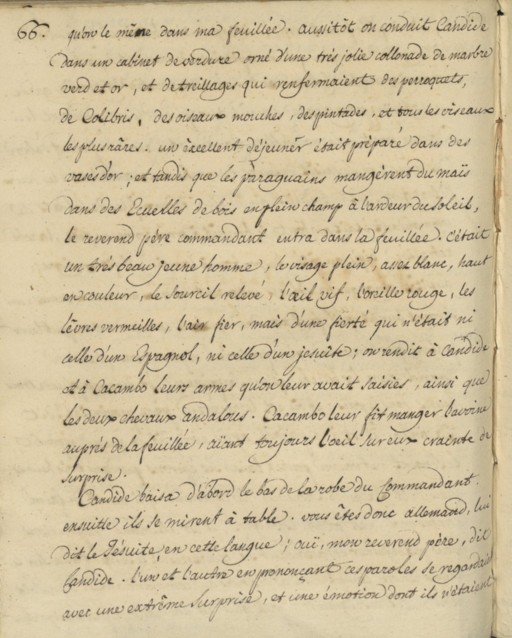 66. qu'on le mêne dans ma feuillée. aussitôt on conduit Candide
dans un cabinet de verdure orné d'une très jolie collonade de marbre
verd et or, et de treillages qui renfermaient des perroquets,
de Colibris, des oiseaux mouches, des pintades, et tous les oiseaux
les plus râres. un éxcellent déjeunér était préparé dans des
vases d'or; et tandis que les paraguains mangèrent du maïs
dans des Ecuelles de bois en plein champ à l'ardeur du soleil,
le reverend père commandant entra dans la feuillée. c'était
un très beau jeune homme, le visage plein, assez blanc, haut
en couleur, le sourcil relevé, l'œil vif, l'oreille rouge, les
lèvres vermeilles, l'air fier, mais d'une fierté qui n'était ni
celle d'un Espagnol, ni celle d'un jesuite; on rendit à Candide
et à Cacambo leurs armes qu'on leur avait saisies, ainsi que
les deux chevaux andalous. Cacambo leur fit manger l'avoine
auprès de la feuillée, aïant toujours l'oeil sur eux crainte de
surprise.
Candide baisa d'abord le bas de la robe du Commandant.
ensuitte ils se mirent à table. vous êtes donc allemand, lui
dit le Jésuite, en cette langue; ouï, mon reverend père, dit
Candide. l'un et l'autre en prononçant ces paroles se regardaient
avec une extrême surprise, et une émotion dont ils n'étaient